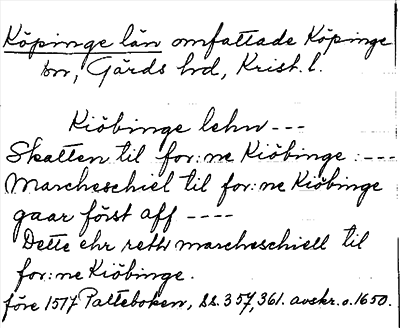 Köpinge län omfattade Köpinge
sn, Gärds hd, Krist. l.
Kiöbinge lehn ---
Skatten til for:ne Kiöbinge : ---
Marcheschiel til for:ne Kiöbinge
gaar först aff ----
Dette ehr reth marcheschiell til
for:ne Kiöbinge.
före 1517 Palteboken, ss. 357, 361. avskr. o. 1650.